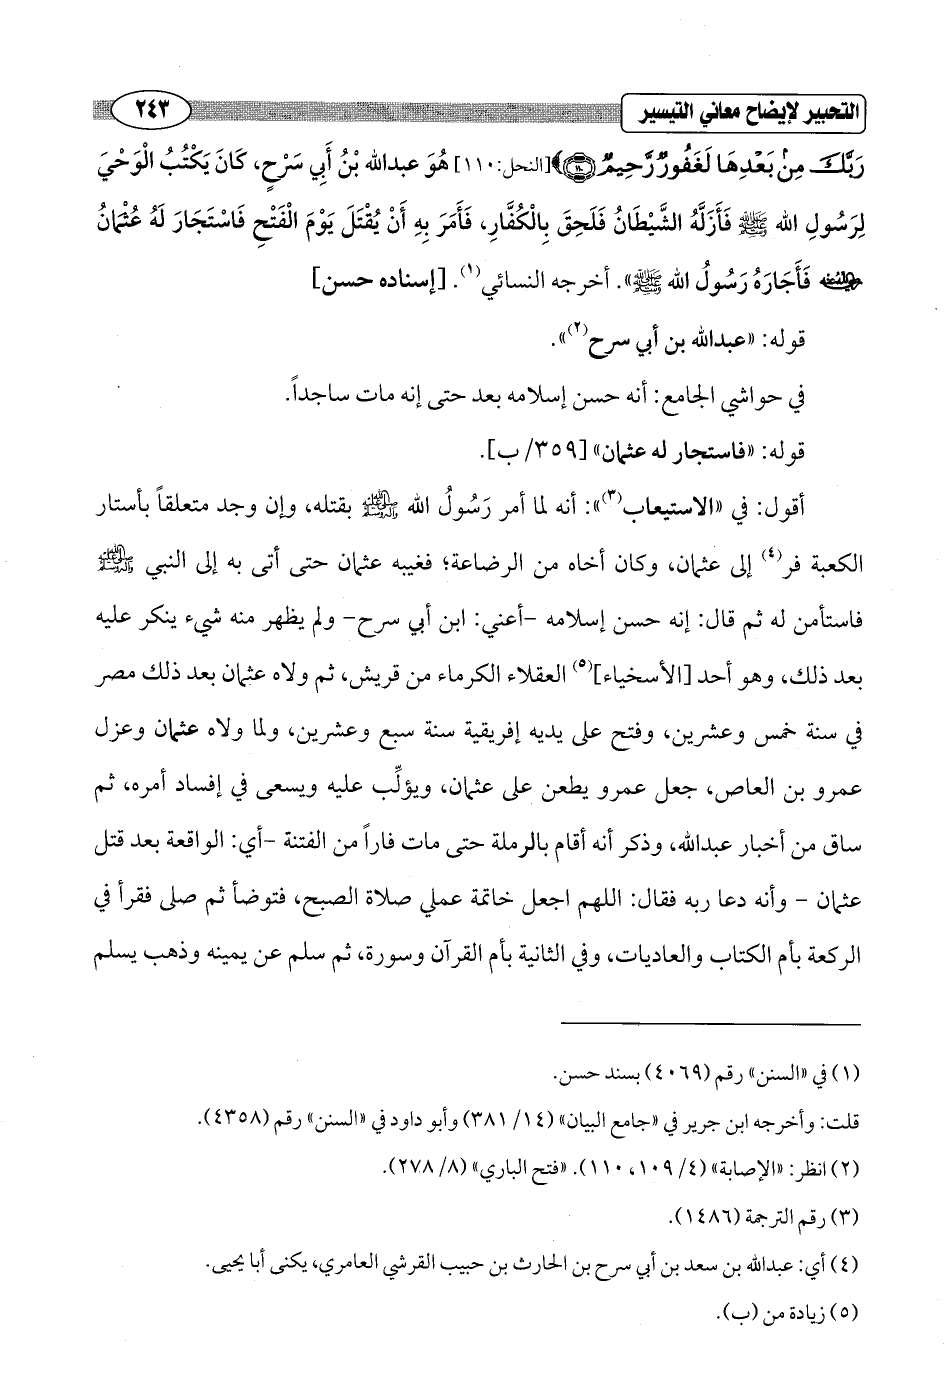 التحبير لإيضاح معاني التيسير ٢٤٣
رَبَّكَ مِنْ بَعْدِهَا لَغَفُورٌ رَّحِيمٌ ﴿١١٠﴾ [النحل: ١١٠] هُوَ عبدالله بْنُ أَبِي سَرْحٍ، كَانَ يَكْتُبُ الْوَحْيَ
لِرَسُولِ الله ﷺ فَأَزَلَّهُ الشَّيْطَانُ فَلَحِقَ بِالْكُفَّارِ، فَأَمَرَ بِهِ أَنْ يُقْتَلَ يَوْمَ الْفَتْحِ فَاسْتَجَارَ لَهُ عُثْمَانُ
رضي الله عنه فَأَجَارَهُ رَسُولُ الله ﷺ». أخرجه النسائي(١). [إسناده حسن]
قوله: «عبدالله بن أبي سرح(٢)».
في حواشي الجامع: أنه حسن إسلامه بعد حتى إنه مات ساجداً.
قوله: «فاستجار له عثمان» [٣٥٩/ ب].
أقول: في «الاستيعاب(٣)»: أنه لما أمر رَسُولُ الله ﷺ بقتله، وإن وجد متعلقاً بأستار
الكعبة فر(٤) إلى عثمان، وكان أخاه من الرضاعة؛ فغيبه عثمان حتى أتى به إلى النبي ﷺ
فاستأمن له ثم قال: إنه حسن إسلامه -أعني: ابن أبي سرح- ولم يظهر منه شيء ينكر عليه
بعد ذلك، وهو أحد [الأسخياء](٥) العقلاء الكرماء من قريش، ثم ولاه عثمان بعد ذلك مصر
في سنة خمس وعشرين، وفتح على يديه إفريقية سنة سبع وعشرين، ولما ولاه عثمان وعزل
عمرو بن العاص، جعل عمرو يطعن على عثمان، ويؤلِّب عليه ويسعى في إفساد أمره، ثم
ساق من أخبار عبدالله، وذكر أنه أقام بالرملة حتى مات فاراً من الفتنة -أي: الواقعة بعد قتل
عثمان - وأنه دعا ربه فقال: اللهم اجعل خاتمة عملي صلاة الصبح، فتوضأ ثم صلى فقرأ في
الركعة بأم الكتاب والعاديات، وفي الثانية بأم القرآن وسورة، ثم سلم عن يمينه وذهب يسلم
(١) في «السنن» رقم (٤٠٦٩) بسند حسن.
قلت: وأخرجه ابن جرير في «جامع البيان» (١٤/ ٣٨١) وأبو داود في «السنن» رقم (٤٣٥٨).
(٢) انظر: «الإصابة» (٤/ ١٠٩، ١١٠). «فتح الباري» (٨/ ٢٧٨).
(٣) رقم الترجمة (١٤٨٦).
(٤) أي: عبدالله بن سعد بن أبي سرح بن الحارث بن حبيب القرشي العامري، يكنى أبا يحيى.
(٥) زيادة من (ب).